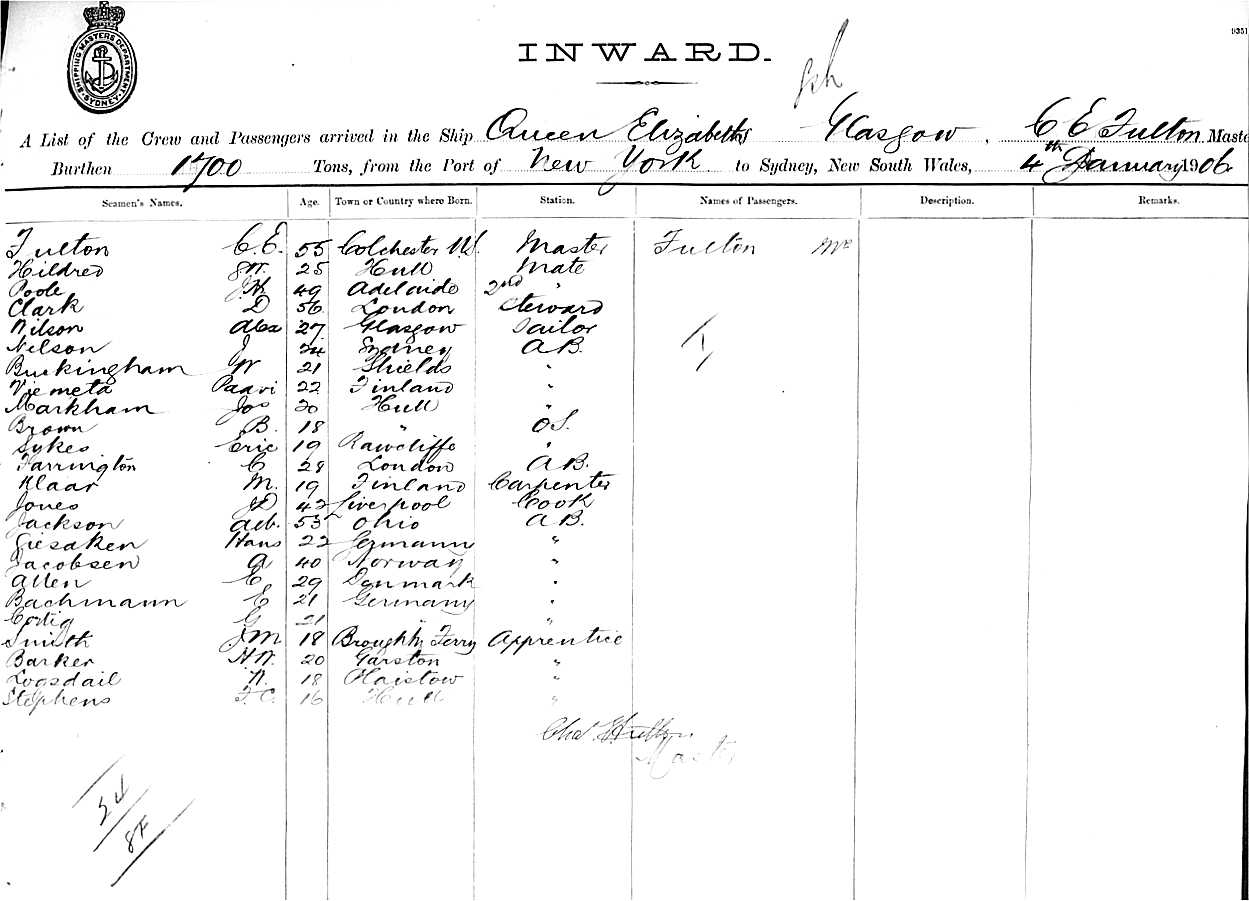 SHIPPING MASTERS DEPARTMENT SYDNEY
INWARD.
A List of the Crew and Passengers arrived in the Ship Queen Elizabeth Glasgow, C E Fulton Maste
Burthen 1700 Tons, from the Port of New York to Sydney, New South Wales, 4th January 1906
Seamen's Names. Age. Town or Country where Born. Station. Names of Passengers. Description. Remarks.
Fulton C.E. 55 Colchester N.S. Master Fulton Mrs
Hildred W. 25 Hull Mate
Poole J.H. 49 Adelaide 2nd "
Clark D 56 London Steward
Wilson Alex 27 Glasgow Sailor
Nelson J 24 Sydney A.B.
Buckingham W 21 Shields "
Viemeta Paavi 22 Finland "
Markham Jos 20 Hull "
Brown B. 18 " O.S.
Sykes Eric 19 Rawcliffe "
Farrington C 28 London A.B.
Klaar M. 19 Finland Carpenter
Jones J.D 42 Liverpool Cook
Jackson 53 Ohio A.B.
Giesaken Hans 22 Germany "
Jacobsen A 40 Norway "
Allen C 29 Denmark "
Bachmann E 21 Germany "
G 21 " "
Smith J.M 18 Broughty Ferry Apprentice
Barker H.W. 20 Garston "
Logsdail W. 18 Plaistow "
Stephens F.C. 16 Hull "
Chas E Fulton
Master